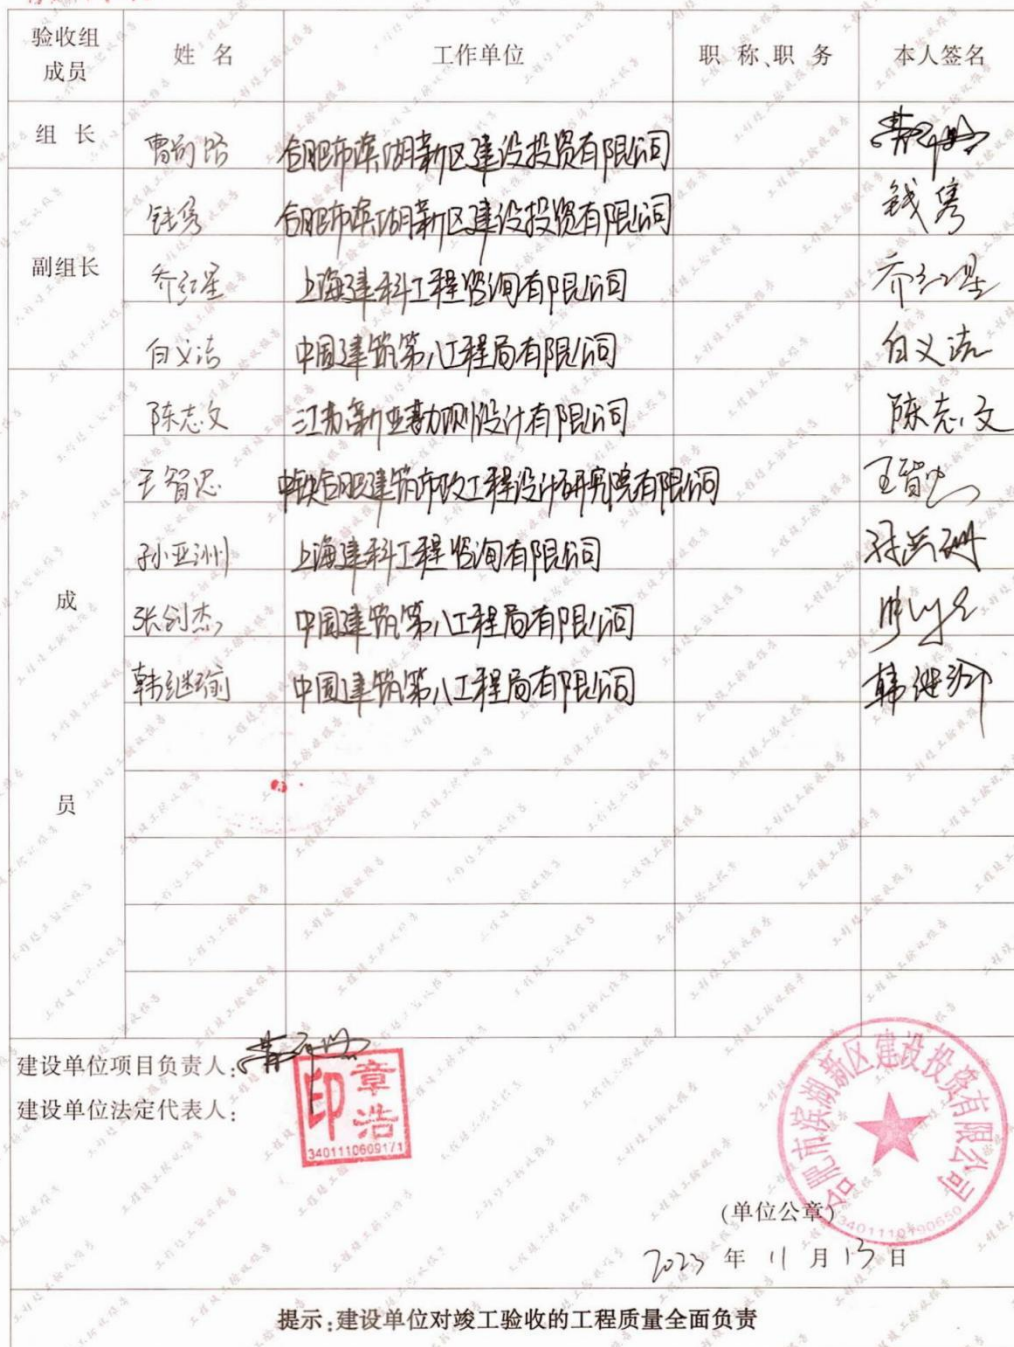 验收组
成员 姓 名 工作单位 职 称、职 务 本人签名
组 长 合肥市滨湖新区建设投资有限公司
钱隽 合肥市滨湖新区建设投资有限公司 钱隽
副组长 乔红星 上海建科工程咨询有限公司 乔红星
白义洁 中国建筑第八工程局有限公司 白义洁
陈志文 江苏新亚勘测设计有限公司 陈志文
王智忠 中铁合肥建筑市政工程设计研究院有限公司 王智忠
孙亚洲 上海建科工程咨询有限公司
成 张剑杰 中国建筑第八工程局有限公司
韩继瑜 中国建筑第八工程局有限公司 韩继瑜
员
建设单位项目负责人:
建设单位法定代表人:
章浩印
合肥市滨湖新区建设投资有限公司
(单位公章)
2023 年 11 月 13 日
提示:建设单位对竣工验收的工程质量全面负责
工程竣工验收报告